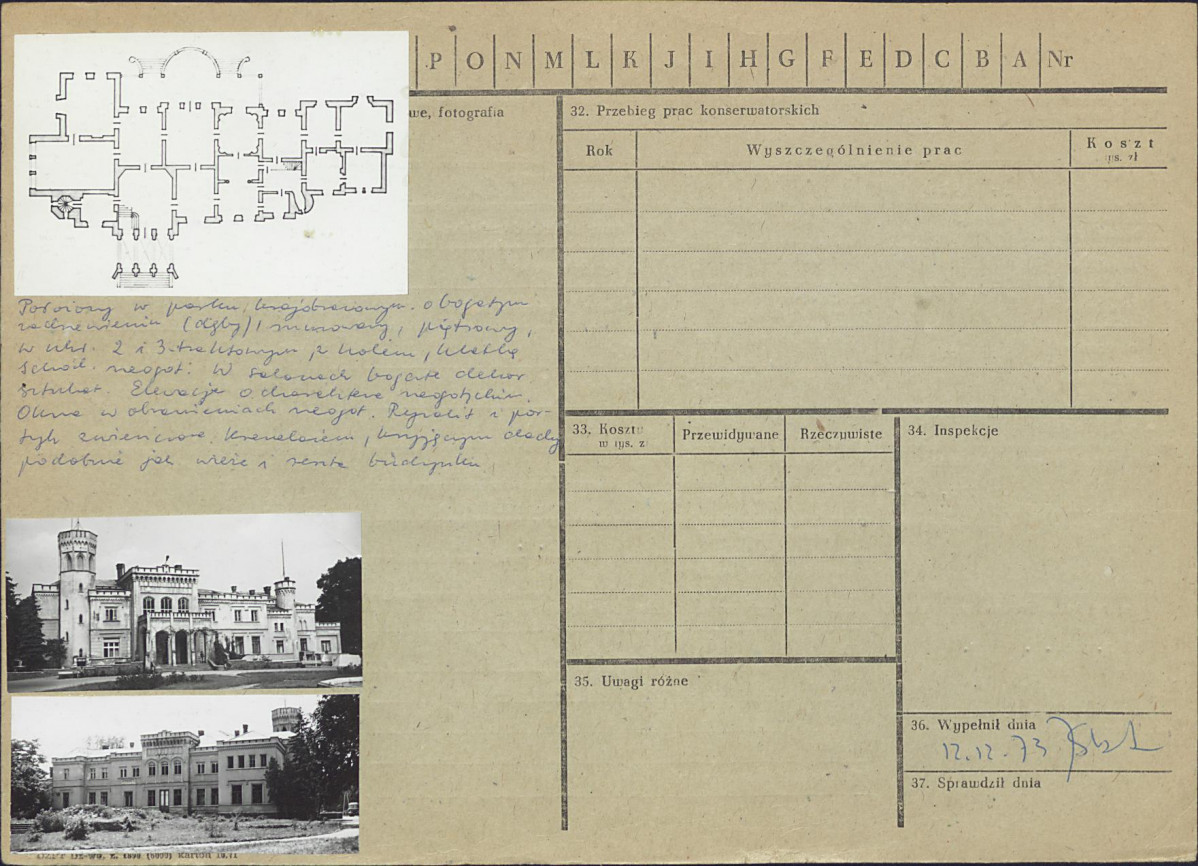 P O N M L K J I H G F E D C B A Nr
we, fotografia
32. Przebieg prac konserwatorskich
Rok
Wyszczególnienie prac
Koszt
tys. zł
Położony w parku krajobrazowym o bogatym
zadrzewieniu (dęby), murowany, piętrowy,
w ukł. 2 i 3-traktowym, z holem, klatką
schod. neogot. W salonach bogate dekor.
sztukat. Elewacje o charakterze neogotyckim.
Okna w obramieniach neogot. Ryzalit i por-
tyk zwieńczone krenelażem, kryjącym dachy
podobnie jak wieże i reszta budynku
33. Koszty
w tys. z
Przewidywane
Rzeczywiste
34. Inspekcje
35. Uwagi różne
36. Wypełnił dnia
12.12.73
37. Sprawdził dnia
(6000) Karton